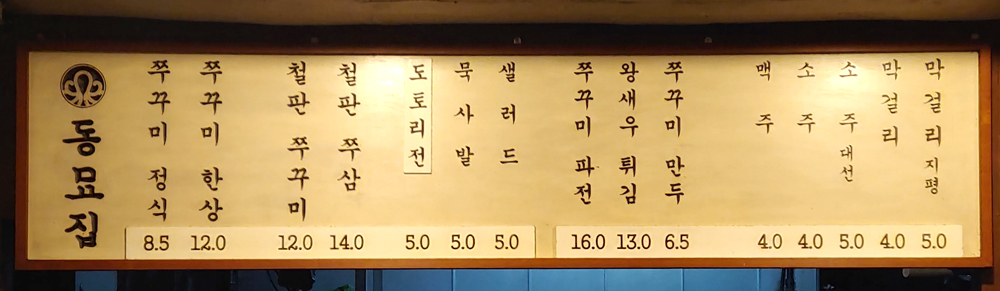 동묘집
쭈꾸미 정식 8.5
쭈꾸미 한상 12.0
철판 쭈꾸미 12.0
철판 쭈삼 14.0
도토리전 5.0
묵사발 5.0
샐러드 5.0
쭈꾸미 파전 16.0
왕새우 튀김 13.0
쭈꾸미 만두 6.5
맥주 4.0
소주 4.0
소주 대선 5.0
막걸리 4.0
막걸리 지평 5.0